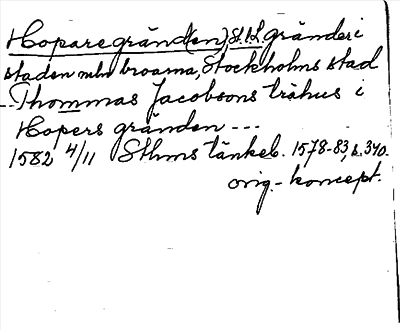 Hoparegränd(en), St. N. gränder i
staden mln broarna, Stockholms stad
--Thommas Jacobsons trähus i
Hopers gränden ---
1582 4/11 Sthms tänkeb. 1578-83, s. 340.
orig.-koncept.